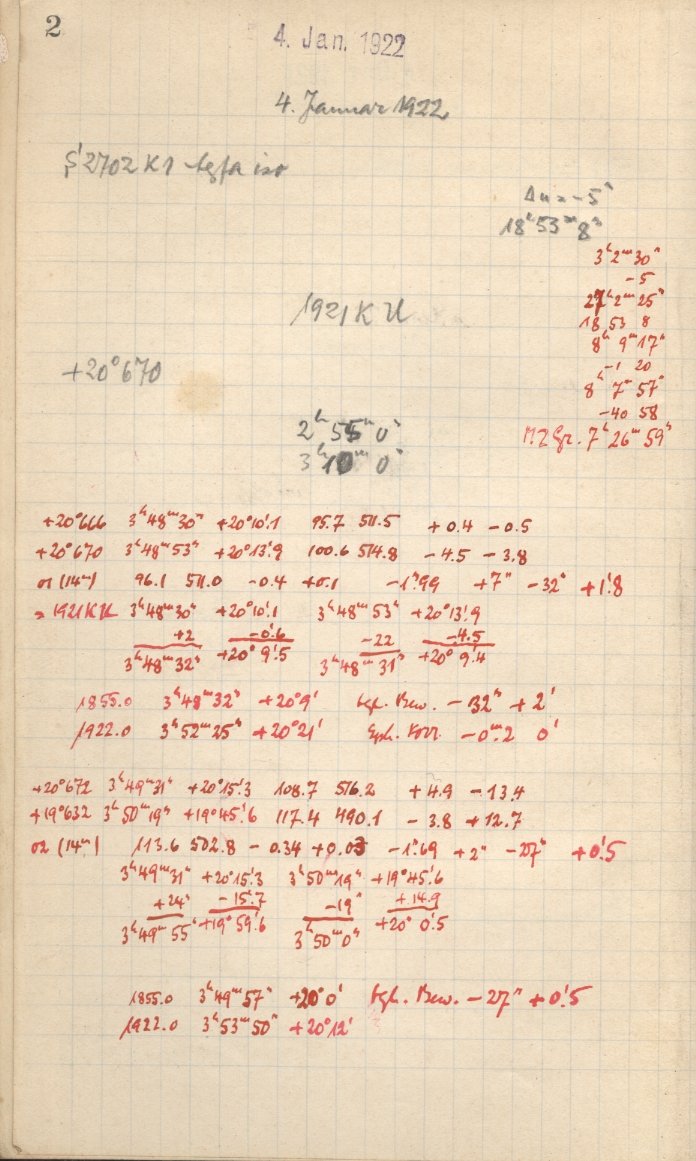 2
4. Jan. 1922
4. Januar 1922
2702 K1
Δu = -5ˢ
18ʰ 53ᵐ 8ˢ
3ʰ 2ᵐ 30ˢ
-5
2ᵐ 25ˢ
18 53 8
8ʰ 9ᵐ 17ˢ
-1 20
8ʰ 7ᵐ 57ˢ
-40 58
MZGr. 7ʰ 26ᵐ 59ˢ
1921 KU
+20°670
2ʰ 55ᵐ 0ˢ
3ʰ 10ᵐ 0ˢ
+20°666 3ʰ48ᵐ30ˢ +20°10'.1 95.7 511.5 +0.4 -0.5
+20°670 3ʰ48ᵐ53ˢ +20°13'.9 100.6 514.8 -4.5 -3.8
or (14ᵐ) 96.1 511.0 -0.4 +0.1 -1ᵐ.99 +7" -32ˢ +1'.8
= 1921 KU 3ʰ48ᵐ30ˢ +20°10'.1 3ʰ48ᵐ53ˢ +20°13'.9
+2 -0'.6 -22 -4.5
3ʰ48ᵐ32ˢ +20° 9'.5 3ʰ48ᵐ31ˢ +20° 9'.4
1855.0 3ʰ48ᵐ32ˢ +20°9' tgl. Bew. -32ˢ +2'
1922.0 3ʰ52ᵐ25ˢ +20°21' Eph. Korr. -0ᵐ.2 0'
+20°672 3ʰ49ᵐ31ˢ +20°15'.3 108.7 516.2 +4.9 -13.4
+19°632 3ʰ50ᵐ19ˢ +19°45'.6 117.4 490.1 -3.8 +12.7
or (14ᵐ) 113.6 502.8 -0.34 +0.03 -1ᵐ.69 +2" -27ˢ +0'.5
3ʰ49ᵐ31ˢ +20°15'.3 3ʰ50ᵐ19ˢ +19°45'.6
+24ˢ -15'.7 -19ˢ +14.9
3ʰ49ᵐ55ˢ +19°59'.6 3ʰ50ᵐ0ˢ +20° 0'.5
1855.0 3ʰ49ᵐ57ˢ +20°0' tgl. Bew. -27ˢ +0'.5
1922.0 3ʰ53ᵐ50ˢ +20°12'